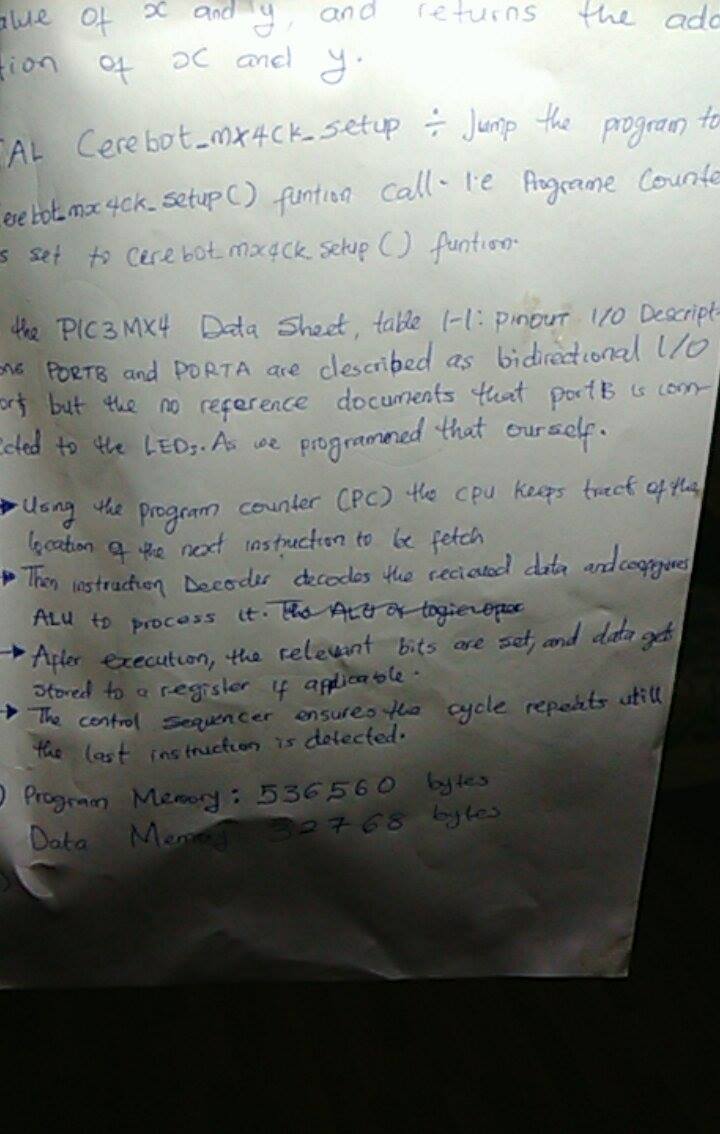 alue of x and y, and returns the add
tion of x and y.
AL Cerebot_mx4ck_setup ÷ Jump the program to
erebot_mx4ck_setup() funtion call. I.e Programe Counte
s set to cerebot_mx4ck_setup() funtion.
the PIC3MX4 Data Sheet, table 1-1: pinout I/O Descript-
ons PORTB and PORTA are described as bidirectional I/O
ort but the no reference documents that portB is conn-
ected to the LEDs. As we programmed that ourself.
→ Using the program counter (PC) the CPU keeps tract of the
location of the next instruction to be fetch
→ Then instruction Decoder decodes the recieved data and
ALU to process it. The ALU or logic
→ After execution, the relevant bits are set, and data get
stored to a register if applicable.
→ The control sequencer ensures the cycle repeats utill
the last instruction is detected.
) Program Memory: 536560 bytes
Data Memory 32768 bytes
)